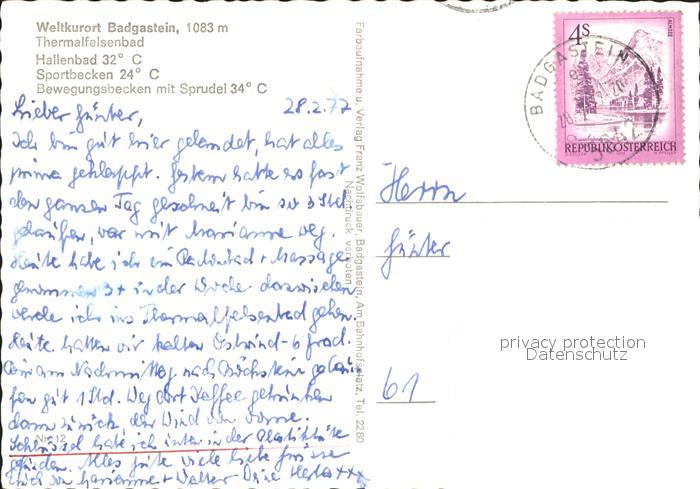 Weltkurort Badgastein, 1083 m
Thermalfelsenbad
Hallenbad 32° C
Sportbecken 24° C
Bewegungsbecken mit Sprudel 34° C
Lieber Günter, 28.2.77
Ich bin gut hier gelandet, hat alles
prima geklappt. Gestern hatte es fast
den ganzen Tag geschneit bin so 3 Std.
gelaufen, war mit Marianne weg.
Heute habe ich ein Radonbad + Massage
genommen 3x in der Woche dazwischen
werde ich ins Thermalfelsenbad gehen.
Heute hatten wir kalten Ostwind -6 Grad.
am Nachmittag nach Böckstein gelau-
fen gut 1 Std. Weg dort Kaffee getrunken
dann zurück, der Wind von vorne.
Schlüssel habe ich unten in der Plastiktüte
gefunden. Alles gute viele liebe Grüsse
auch von Marianne + Walter Deine Herta xxx
Nr. 12
Farbaufnahme u. Verlag Franz Wolfsbauer, Badgastein, Am Bahnhofsplatz, Tel. 2280
Nachdruck verboten
4S
ALMSEE
REPUBLIK ÖSTERREICH
BADGASTEIN
Herrn
Günter
61
privacy protection
Datenschutz